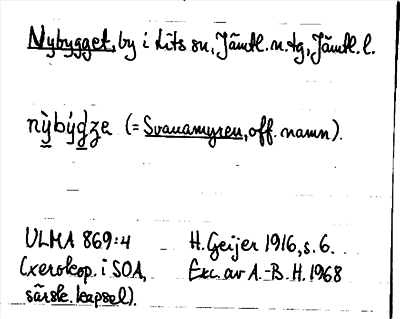 Nybygget, by i Lits sn, Jämtl. n. tg, Jämtl. l.
nỳbýgze (= Svanamyren, off. namn).
ULMA 869:4 H. Geijer 1916, s. 6.
(xerokop. i SOA, Exc. av A.-B. H. 1968
särsk. kapsel).